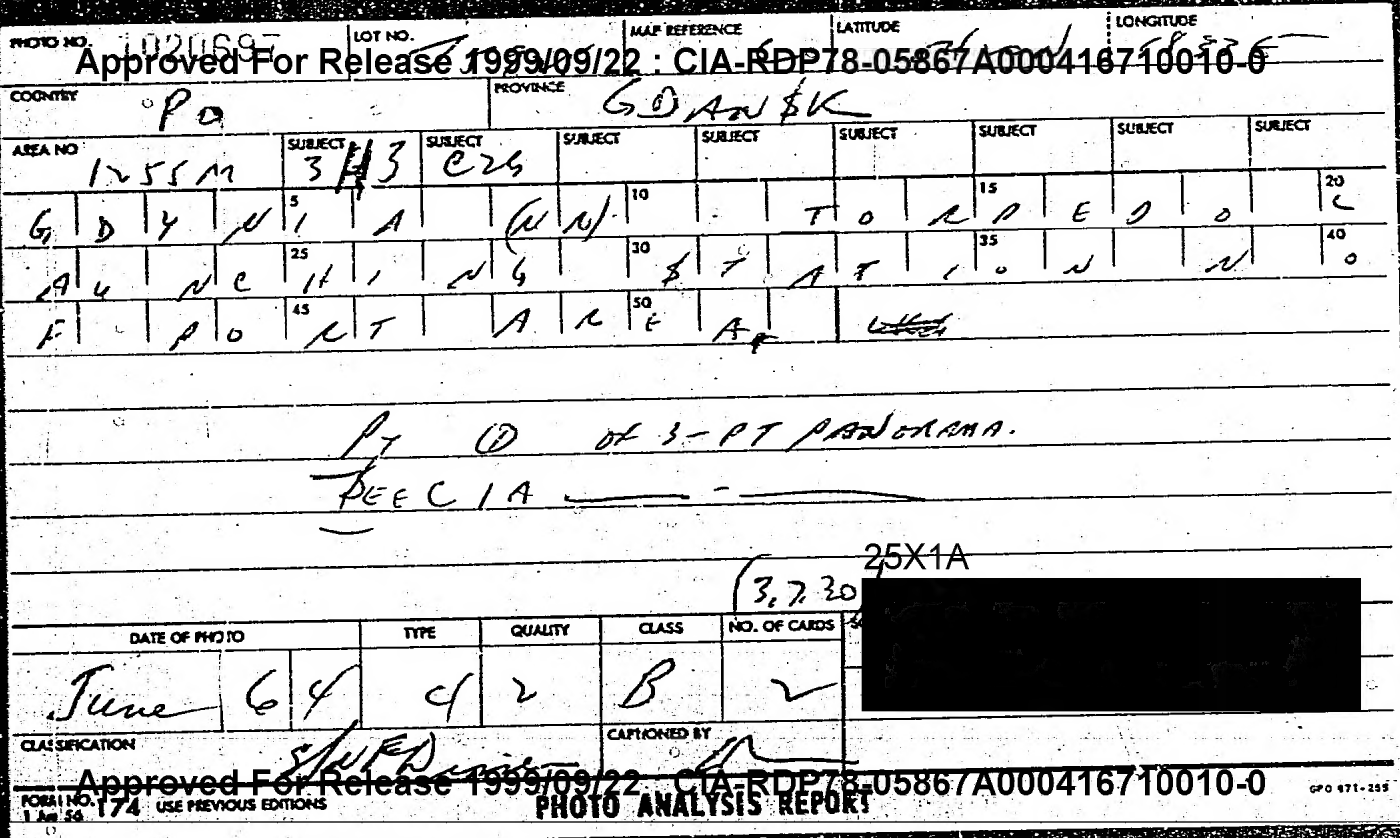 PHOTO NO. 1020697 LOT NO. MAP REFERENCE LATITUDE LONGITUDE
Approved For Release 1999/09/22 : CIA-RDP78-05867A000416710010-0
COUNTRY PO PROVINCE GDANSK
AREA NO 1255M SUBJECT 3H3 SUBJECT C2G SUBJECT SUBJECT SUBJECT SUBJECT SUBJECT SUBJECT
5 10 15 20
GDYNIA (NN). TORPEDO L
25 30 35 40
AUNCHING STATION N O
45 50
F PORT AREA.
PT ① OF 3-PT PANORAMA.
25X1A
(3,7.30)
DATE OF PHOTO TYPE QUALITY CLASS NO. OF CARDS
June 64 4 2 B 2
CLASSIFICATION CAPTIONED BY
Approved For Release 1999/09/22 : CIA-RDP78-05867A000416710010-0
FORM NO. 174 USE PREVIOUS EDITIONS PHOTO ANALYSIS REPORT